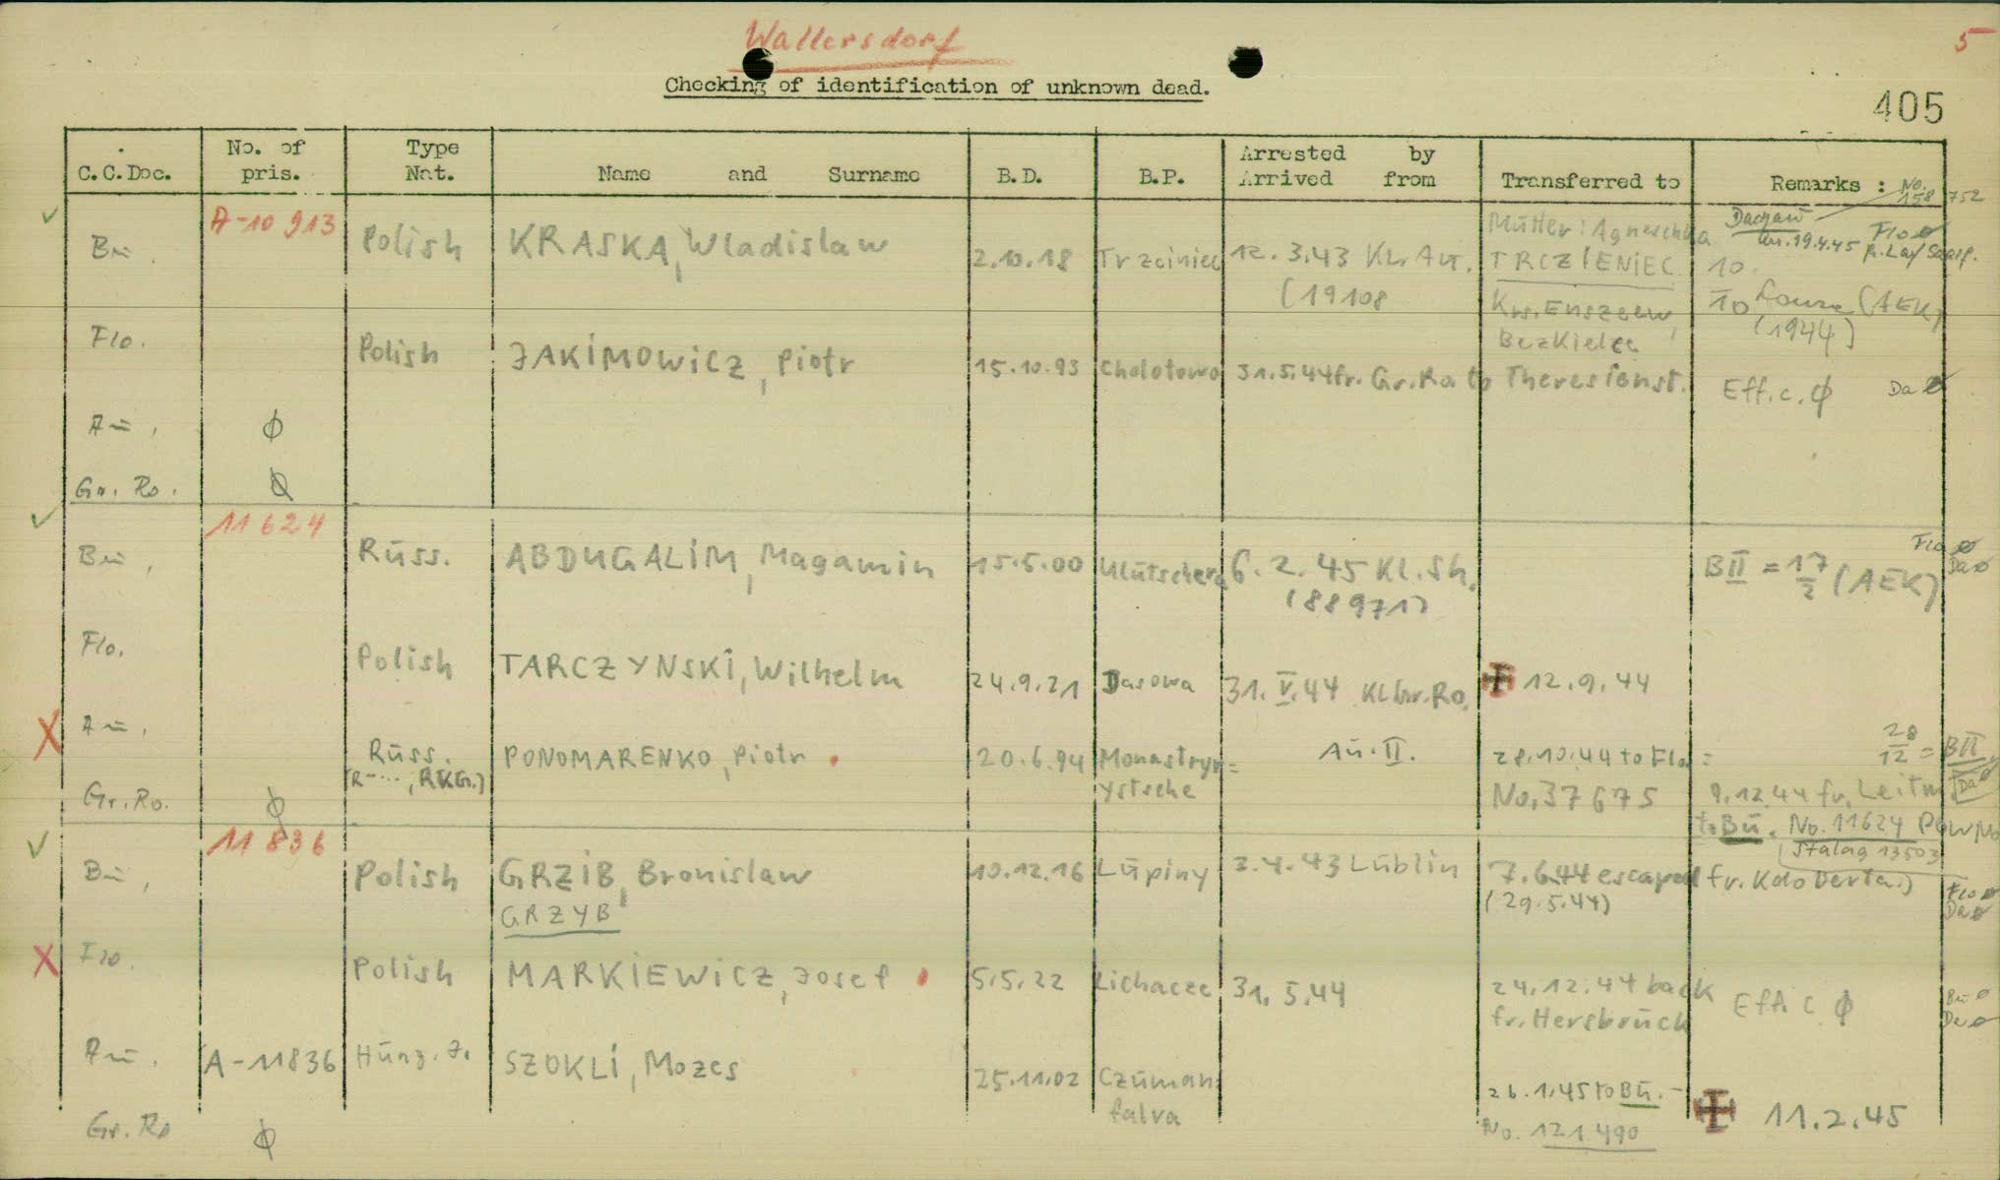 Wallersdorf
5
Checking of identification of unknown dead.
405
C.C.Doc. No. of pris. Type Nat. Name and Surname B.D. B.P. Arrested by Arrived from Transferred to Remarks : No. 158 752
A-10 913
Bū. Polish KRASKA, Wladislaw 2.10.18 Trzciniec 12.3.43 KL. Au. Mütter: Agneschka Dachau Flo ø
(19108 TRCZIENIEC 19.4.45
10.
10 (AEK)
(1944)
Bez Kielce
Flo. Polish JAKIMOWICZ, Piotr 15.10.93 Cholotowo 31.5.44 fr. Gr.Ro to Theresienst. Eff.c. ϕ Da ø
Aū. ϕ
Gr. Ro. ϕ
11624
Bū. Rūss. ABDUGALIM, Magamin 15.5.00 6.2.45 KL.Sh. BII = 17/2 (AEK) Flo ø
(88971) Da ø
Flo. Polish TARCZYNSKI, Wilhelm 24.9.21 Dasowa 31.V.44 KL Gr.Ro. 12.9.44
X Aū. Rūss. PONOMARENKO, Piotr 20.6.94 Monastryr= Aū. II. 28.10.44 to Flo: 28/12 = BII
ystsche No. 37675 9.12.44 fr. Leitm Da ø
Gr. Ro. ϕ to Bū. No. 11624 POW No
Stalag 13503
11836
Bū. Polish GRZIB, Bronislaw 10.12.16 Lūpiny 3.4.43 Lūblin 7.6.44 escaped fr. Kdo Berta.) Flo ø
GRZYB (29.5.44) Da ø
X Flo. Polish MARKIEWICZ, Josef 5.5.22 Lichacze 31.5.44 24.12.44 back Eff. c ϕ Bū ø
fr. Hersbrūck Da ø
Aū. A-11836 Hūng. J. SZOKLI, Mozes 25.11.02 Czūman= 26.1.45 to Bū. - 11.2.45
falva No. 121490
Gr. Ro ϕ